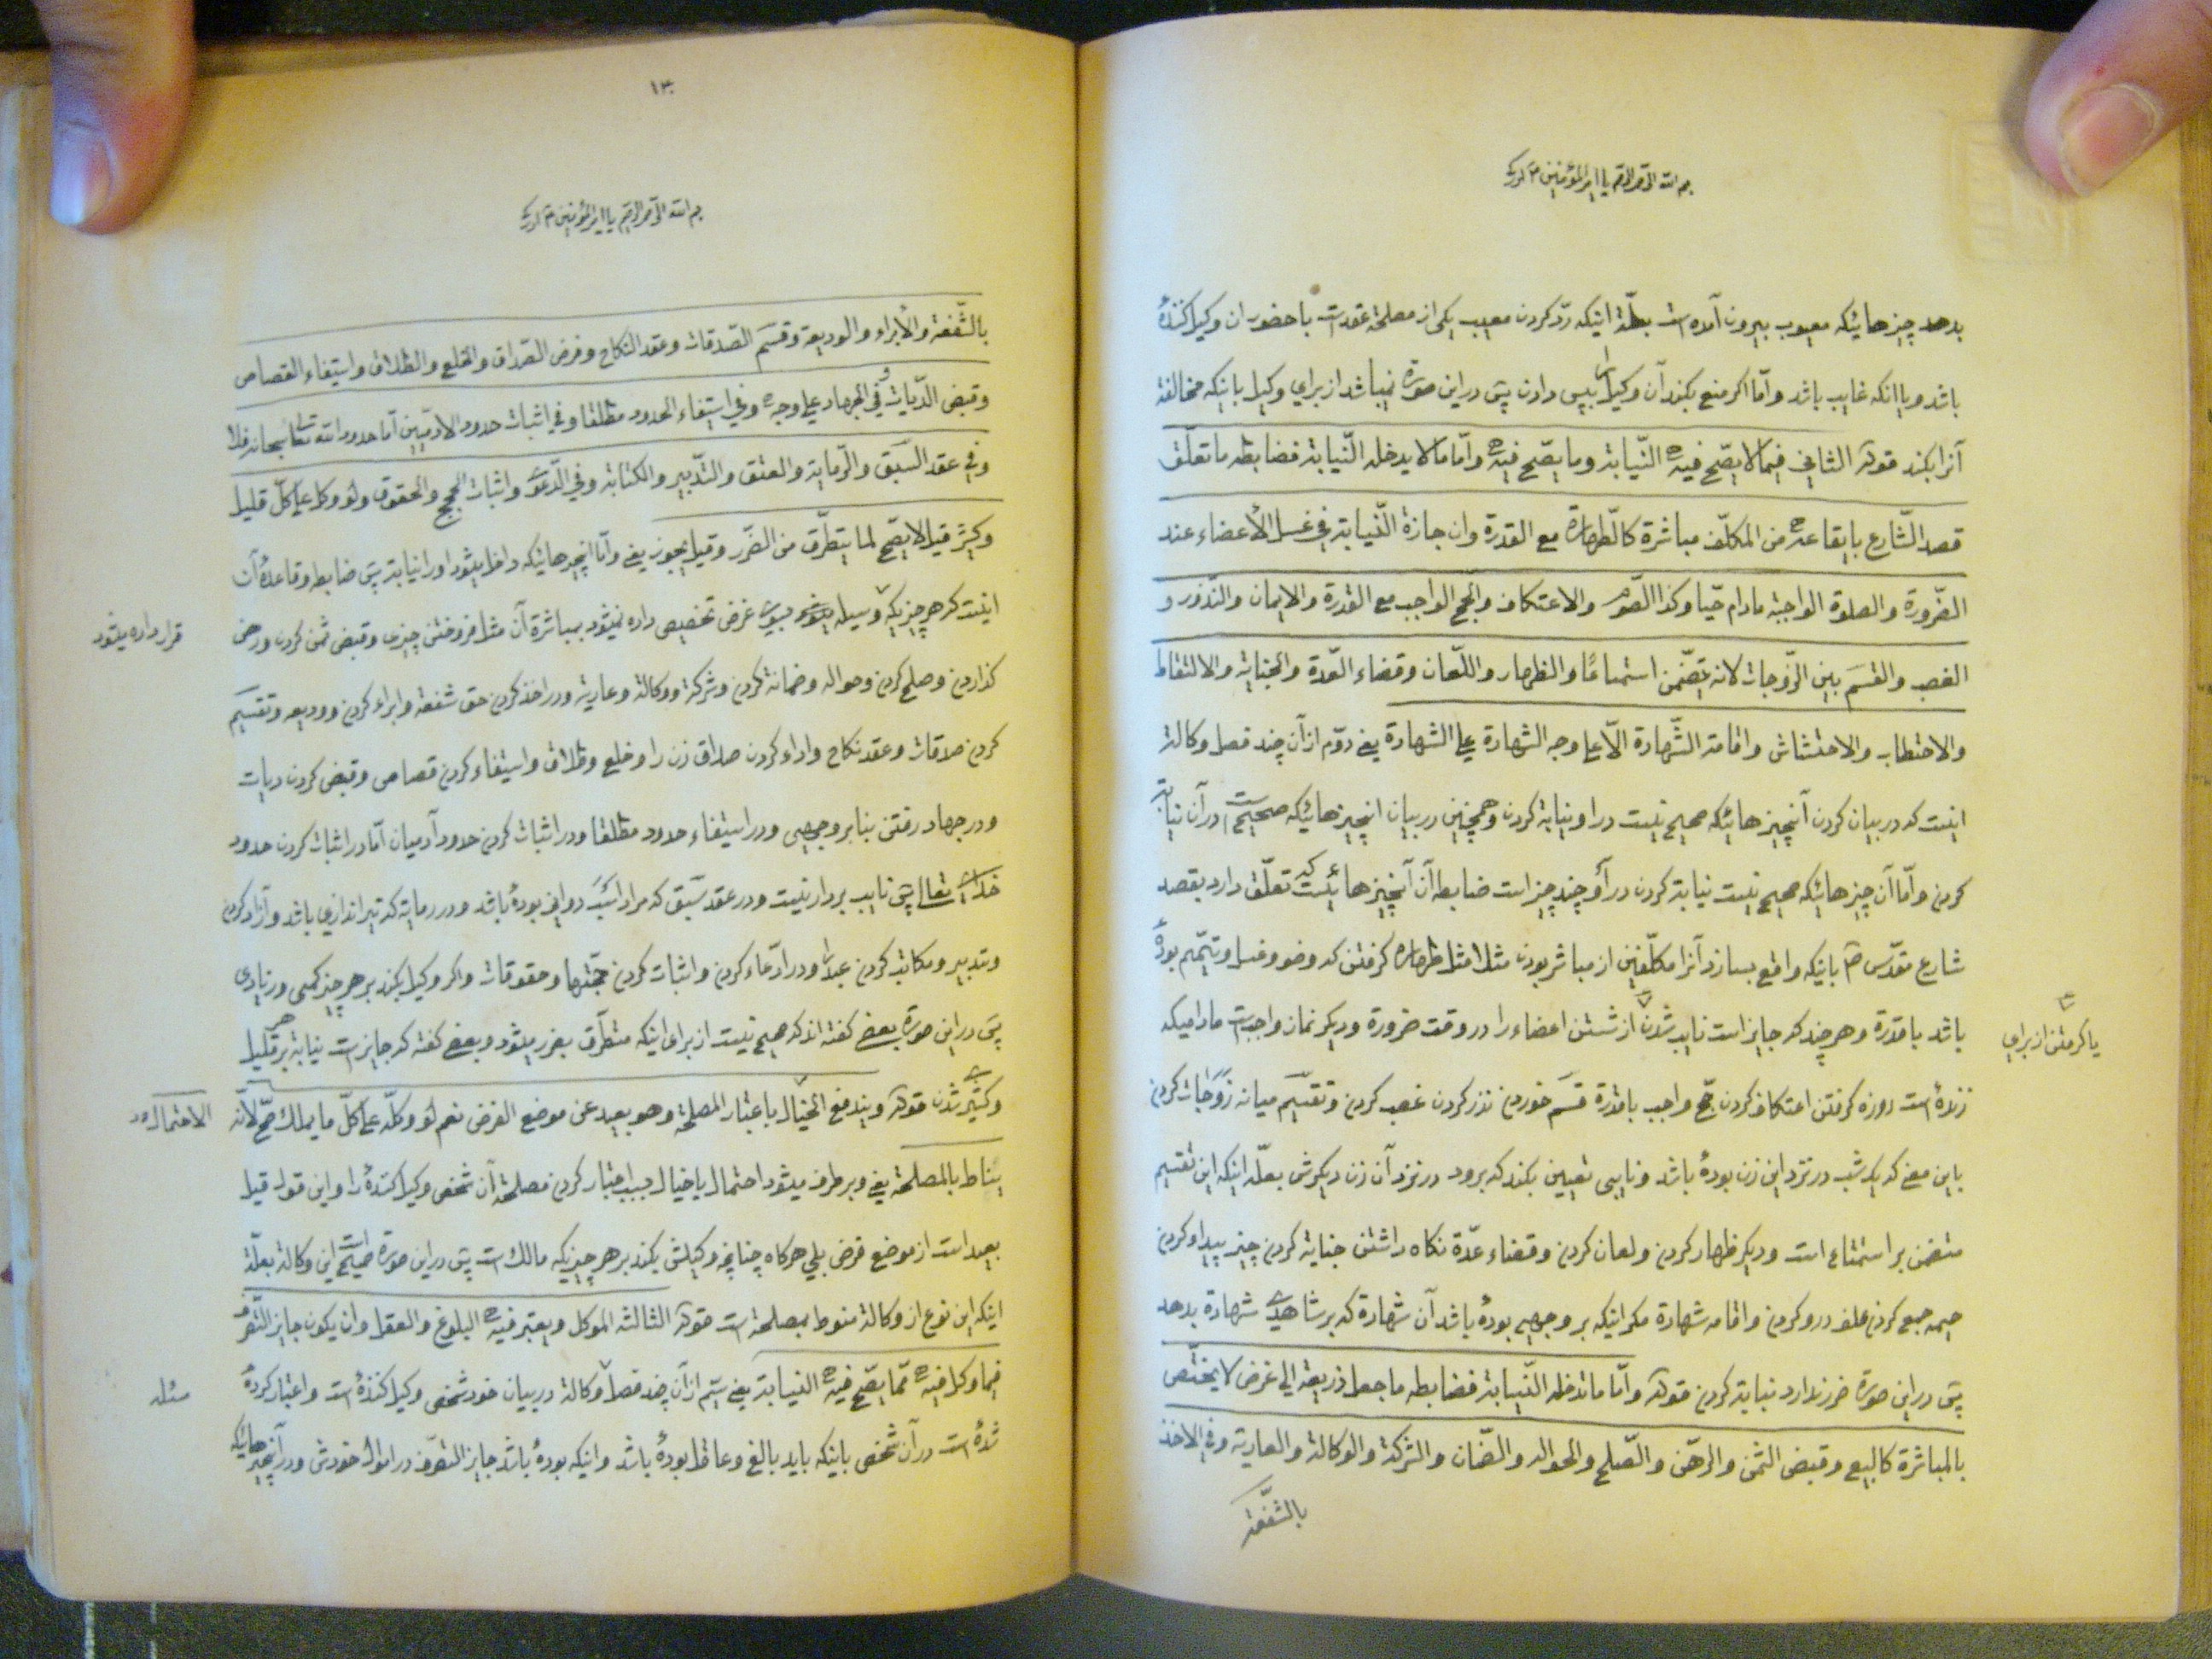 بسم الله الرحمن الرحیم یا امیر المؤمنین ع ادرک
بدهد چیزهائیکه معیوب بیرون آمده است بعلّة اینکه ردّ کردن معیب یکی از مصلحة عقد است با حضور ان وکیل کنندهٔ
باشد و یا انکه غایب باشد و امّا اکر منع بکند آن وکیل را بپس دادن پس در این صورة نمیباشد از برای وکیل بانیکه مخالفة
آنرا بکند قوله الثانی فیما لا یصّح فیه النّیابة وما یصّح فیه وامّا ما لا یدخله النّیابة فضابطه ما تعلّق
قصد الشّارع بایقاعه من المکلّف مباشرة کالّطهارة مع القدرة وان جازة النّیابة فی غسل الأعضاء عند
الضّرورة والصلوة الواجبة مادام حیّا وکذا الصّوم والاعتکاف والحج الواجب مع القدرة والایمان والنّذور و
الغصب والقسم بین الزّوجات لانه یتضّمن استمتاعًا والظهار واللّعان وقضاء العّدة والجنایة والالتقاط
والاحتطاب والاحتشاش واقامة الشّهادة الّا علی وجه الشهادة علی الشهادة یعنی دوّم از آن چند فصل وکالة
اینست که در بیان کردن آنچیزهائیکه صحیح نیست در او نیابة کردن وهمچنین در بیان انچیزهائیکه صحیح است در آن نیابة
کردن وامّا آن چیزهائیکه صحیح نیست نیابة کردن در آو چند چیز است ضابطه آن آنچیزهائیست که تعلّق دارد بقصد
شارع مقدّس ص بانیکه واقع بسازد آنرا مکلّفین از مباشر بودن مثلا مثل طهارة کرفتن که وضو وغسل وتیمّم بوده
باشد با قدرة وهر چند که جایز است نایب شدن از شستن اعضاء را در وقت ضرورة ودیکر نماز واجب است مادامیکه
یا کرفتن از برای
زنده است روزه کرفتن اعتکاف کردن حّج واجب با قدرة قسم خوردن نذر کردن غصب کردن وتقسیم میانه زوجات کردن
باین معنی که یک شب در نزد این زن بوده باشد ونایبی تعیین بکند که برود در نزد آن زن دیکرش بعلّه اینکه این تقسیم
متضمن بر استمتاع است ودیکر ظهار کردن ولعان کردن وقضاء عدّة نکاه داشتن جنایة کردن چیز پیدا کردن
جمع کردن علف درو کردن واقامه شهادة مکر اینکه بر وجهی بوده باشد آن شهادة که بر شاهدی شهادة بدهد
پس در این صورة ضرر ندارد نیابة کردن قوله وامّا ما تدخله النّیابة فضابطه ما جعل ذریعة الی غرض لا یختّص
بالمباشرة کالبیع وقبض الثمن والرّهن والصّلح والحواله والضّمان والشرکة والوکالة والعاریة وفی الاخذ
بالشّفعة
۱۳۰
بسم الله الرحمن الرحیم یا امیر المؤمنین ع ادرک
بالشّفعة والأبراء والودیعة وقسم الصّدقات وعقد النکاح وفرض الصّداق والخلع والطلاق واستیفاء القصاص
وقبض الدّیات وفی الجهاد علی وجه وفی استیفاء الحدود مطلقا وفی اثبات حدود الادمّیین امّا حدود الله سبحانه فلا
وفی عقد السّبق والرّمایة والعتق والتّدبیر والکتابة وفی الدّعوی واثبات الحجج والحقوق ولو وکل علی کلّ قلیل
وکثیر قیل لا یصّح لما یتطّرق من الضّرر وقیل یجوز یعنی وامّا انچیزهائیکه داخل میشود او را نیابة پس ضابطه وقاعدهٔ آن
اینست که هر چیزیکه وسیله بسوی غرض تخصیص داده نمیشود بمباشرة آن مثل فروختن چیزی وقبض ثمن کردن ورهن
قرار داده میشود
کذاردن وصلح کردن وحواله وضمانة کردن وشرکة ووکالة وعاریة ودر اخذ کردن حق شفعة وابراء کردن وودیعه وتقسیم
کردن صدقات وعقد نکاح واداء کردن صداق زن را وخلع وطلاق واستیفاء کردن قصاص وقبض کردن دیات
ودر جهاد رفتن بنابر وجهی ودر استیفاء حدود مطلقا ودر اثبات کردن حدود آدمیان امّا در اثبات کردن حدود
خدای تعالی پس نایب بردار نیست ودر عقد سّبق که مراد اسب دوانی بوده باشد ودر رمایة که تیر اندازی باشد وآزاد کردن
وتدبیر ومکاتبه کردن عبد را ودر ادّعاء کردن واثبات کردن حجّتها وحقوقات واکر وکیل بکند بر هر چیز کمی وزیادی
پس در این صورة بعضی کفته اند که صحیح نیست از برای اینکه متطرّق بضرر میشود وبعضی کفته که جایز است نیابة بر هر قلیل
وکثیری شدن قوله ویندفع الخیال باعتبار المصلحة وهو بعید عن موضع الفرض نعم لو وکلّه علی کلّ ما یملک صّح لأنّه
الاحتمال
یناط بالمصلحة یعنی وبر طرف میشود احتمال یا خیال بسبب اعتبار کردن مصلحة آن شخص وکیل کنندهٔ را واین قول قیل
بعید است از موضع فرض بلی هرکاه چنانچه وکیلش بکند بر هر چیزیکه مالک است پس در این صورة صحیح است این وکالة بعلّة
اینکه این نوع از وکالة منوط بمصلحة است قوله الثالثه الموکل ویعتبر فیه البلوغ والعقل وان یکون جایز التّصرف
فیما وکل فیه ممّا یصّح فیه النیابة یعنی سیّم از آن چند فصل وکالة در بیان خود شخص وکیل کنندهٔ است واعتبار کردهٔ
مسئله
شدهٔ است در آن شخص بانیکه باید بالغ وعاقل بودهٔ باشد واینکه بودهٔ باشد جایز التصرّف در اموال خودش ودر آنچیزهائیکه